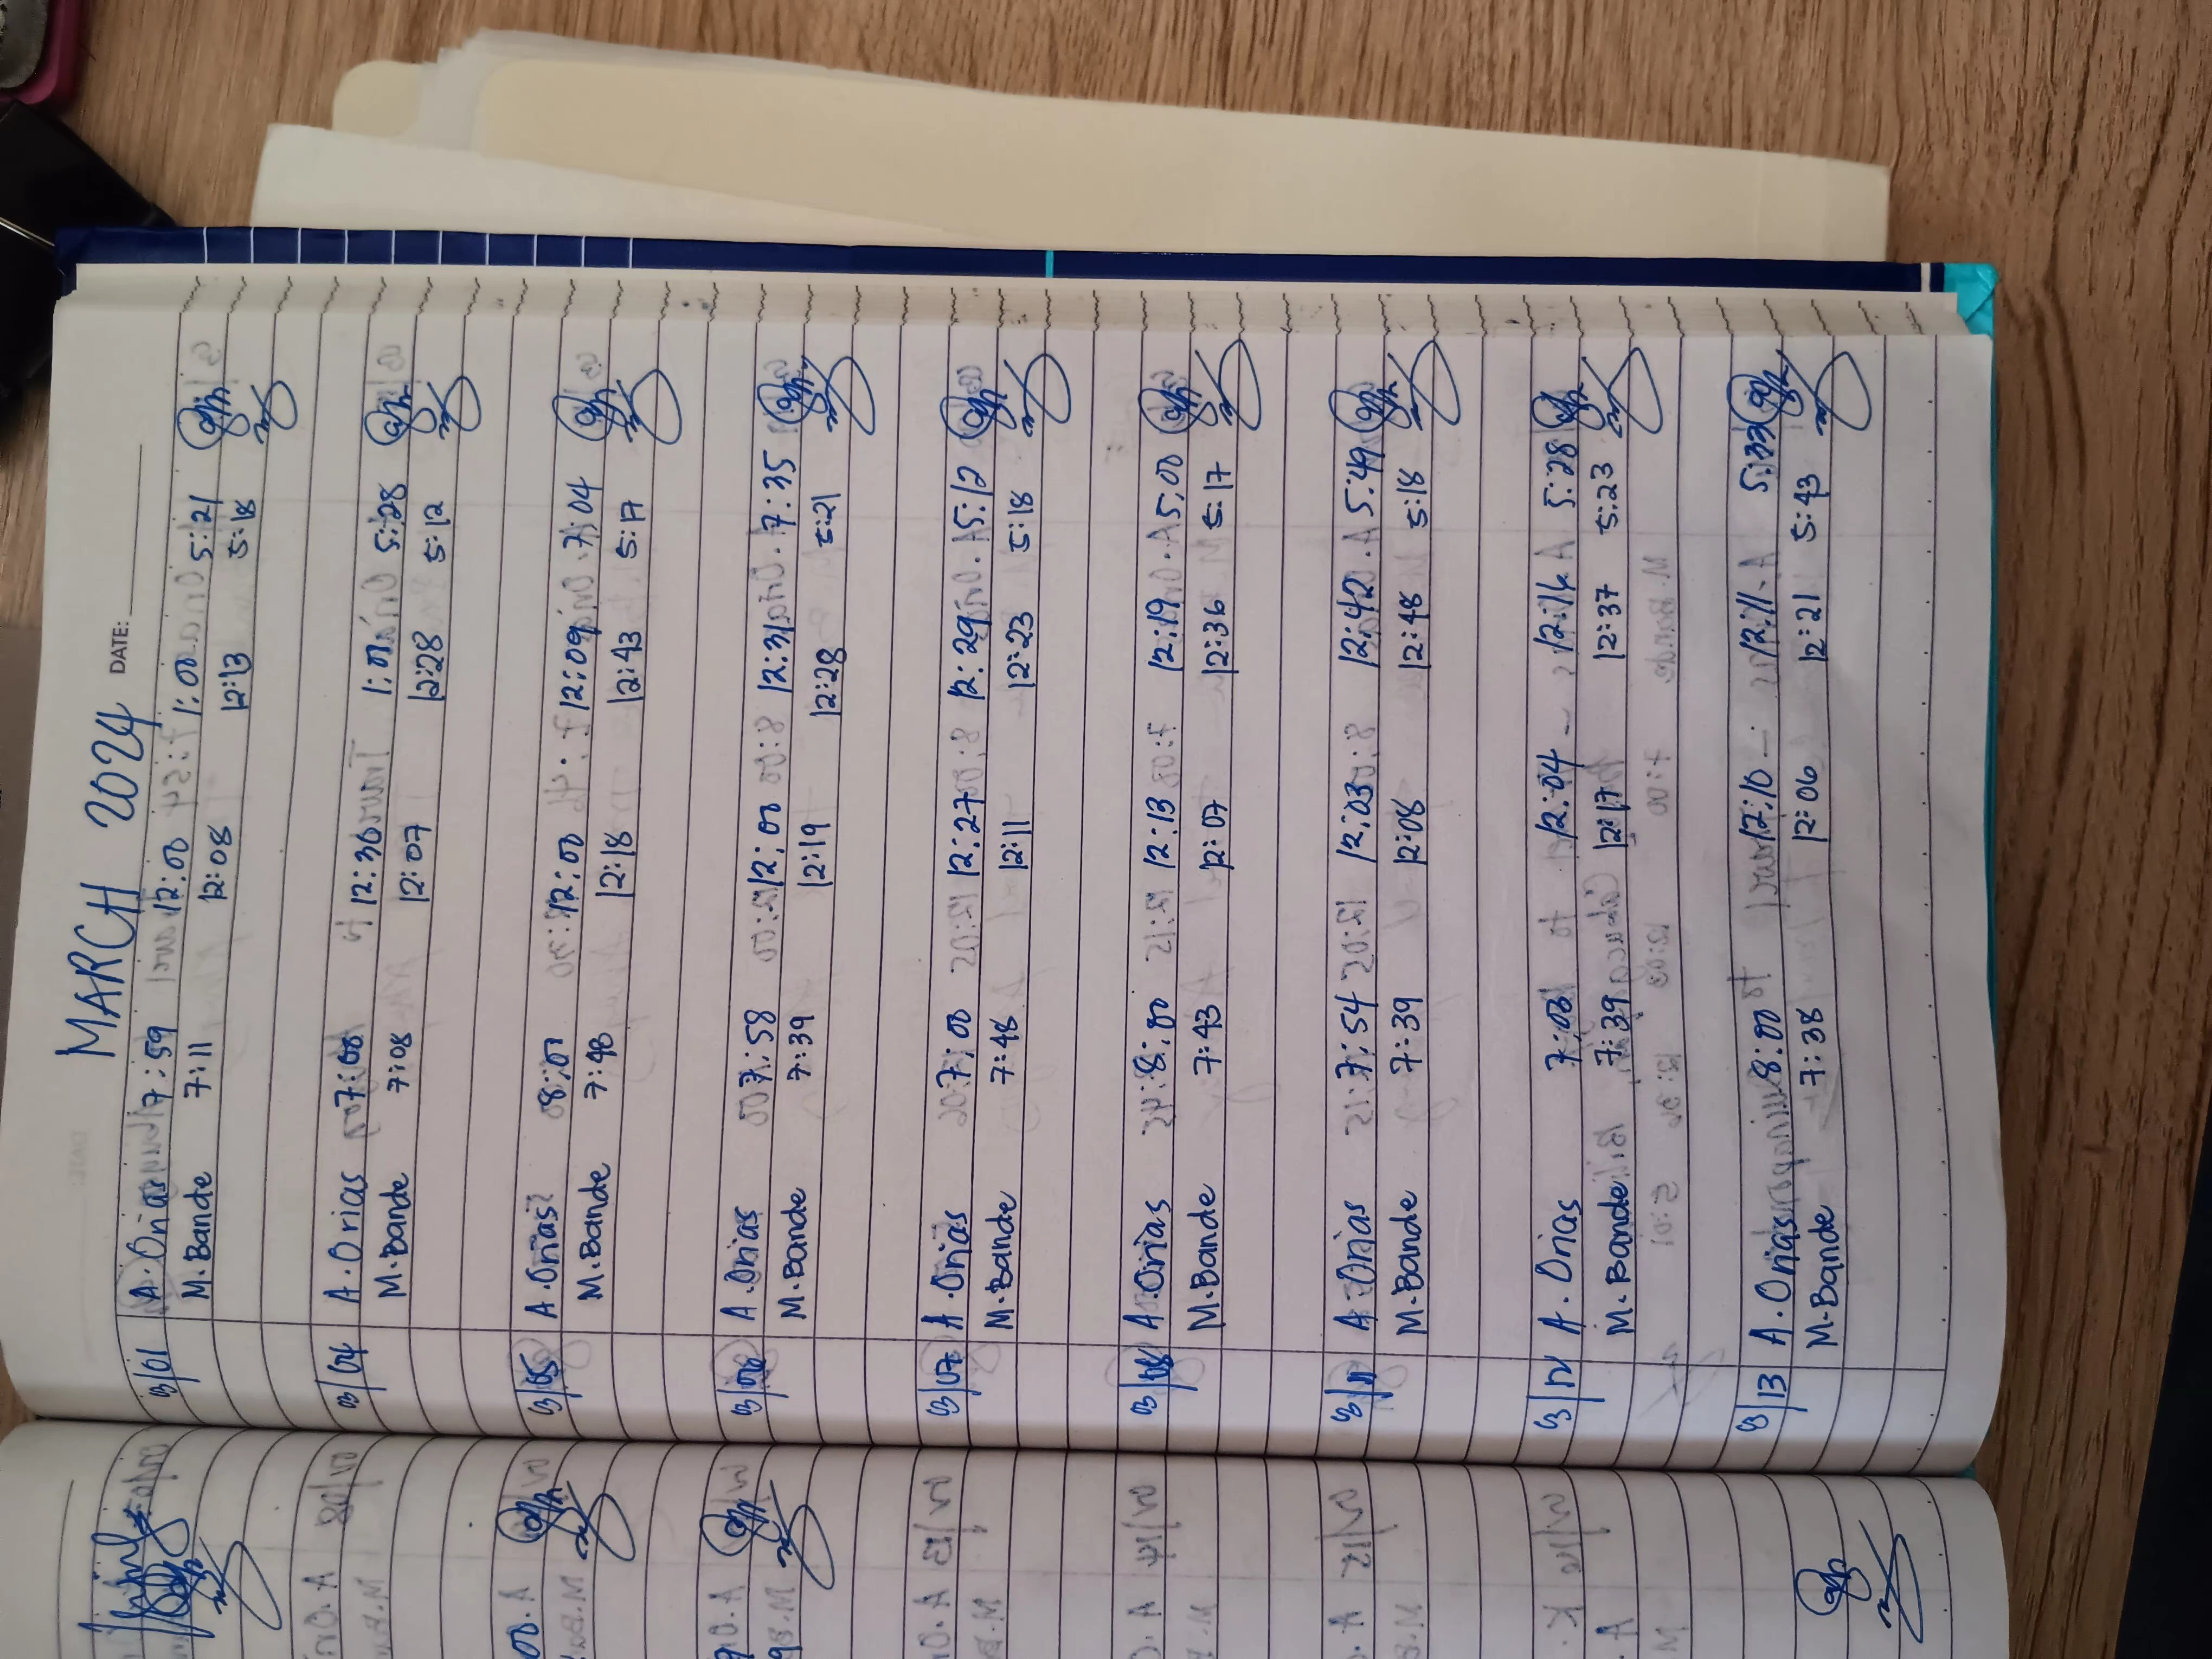 MARCH 2024 DATE:
3/01 A. Orias 7:59 12:00 1:00 5:21
M. Bande 7:11 12:08 12:13 5:18
3/04 A. Orias 7:08 12:30 1:01 5:28
M. Bande 7:08 12:07 12:28 5:12
3/05 A. Orias 8:01 12:00 12:09 7:04
M. Bande 7:48 12:18 12:43 5:17
3/06 A. Orias 7:58 12:00 12:31 7:35
M. Bande 7:39 12:19 12:28 5:21
3/07 A. Orias 7:00 12:27 12:29 5:12
M. Bande 7:48 12:11 12:23 5:18
3/08 A. Orias 8:00 12:13 12:19 5:00
M. Bande 7:43 12:07 12:36 5:17
3/11 A. Orias 7:54 12:03 12:42 5:49
M. Bande 7:39 12:08 12:48 5:18
3/12 A. Orias 12:04 5:28
M. Bande 7:39 12:17 12:37 5:23
3/13 A. Orias 8:00 12:10 12:11 5:33
M. Bande 7:38 12:06 12:21 5:43